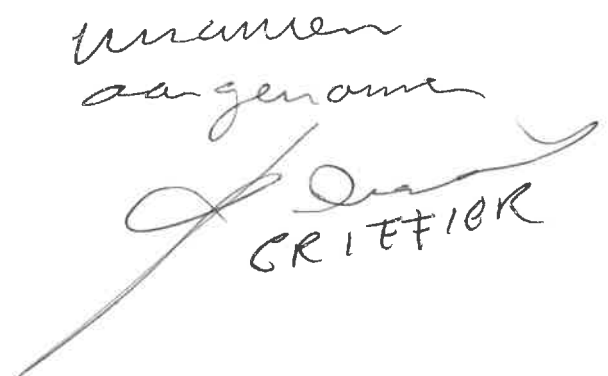 unaniem
aangenomen
GRIFFIER